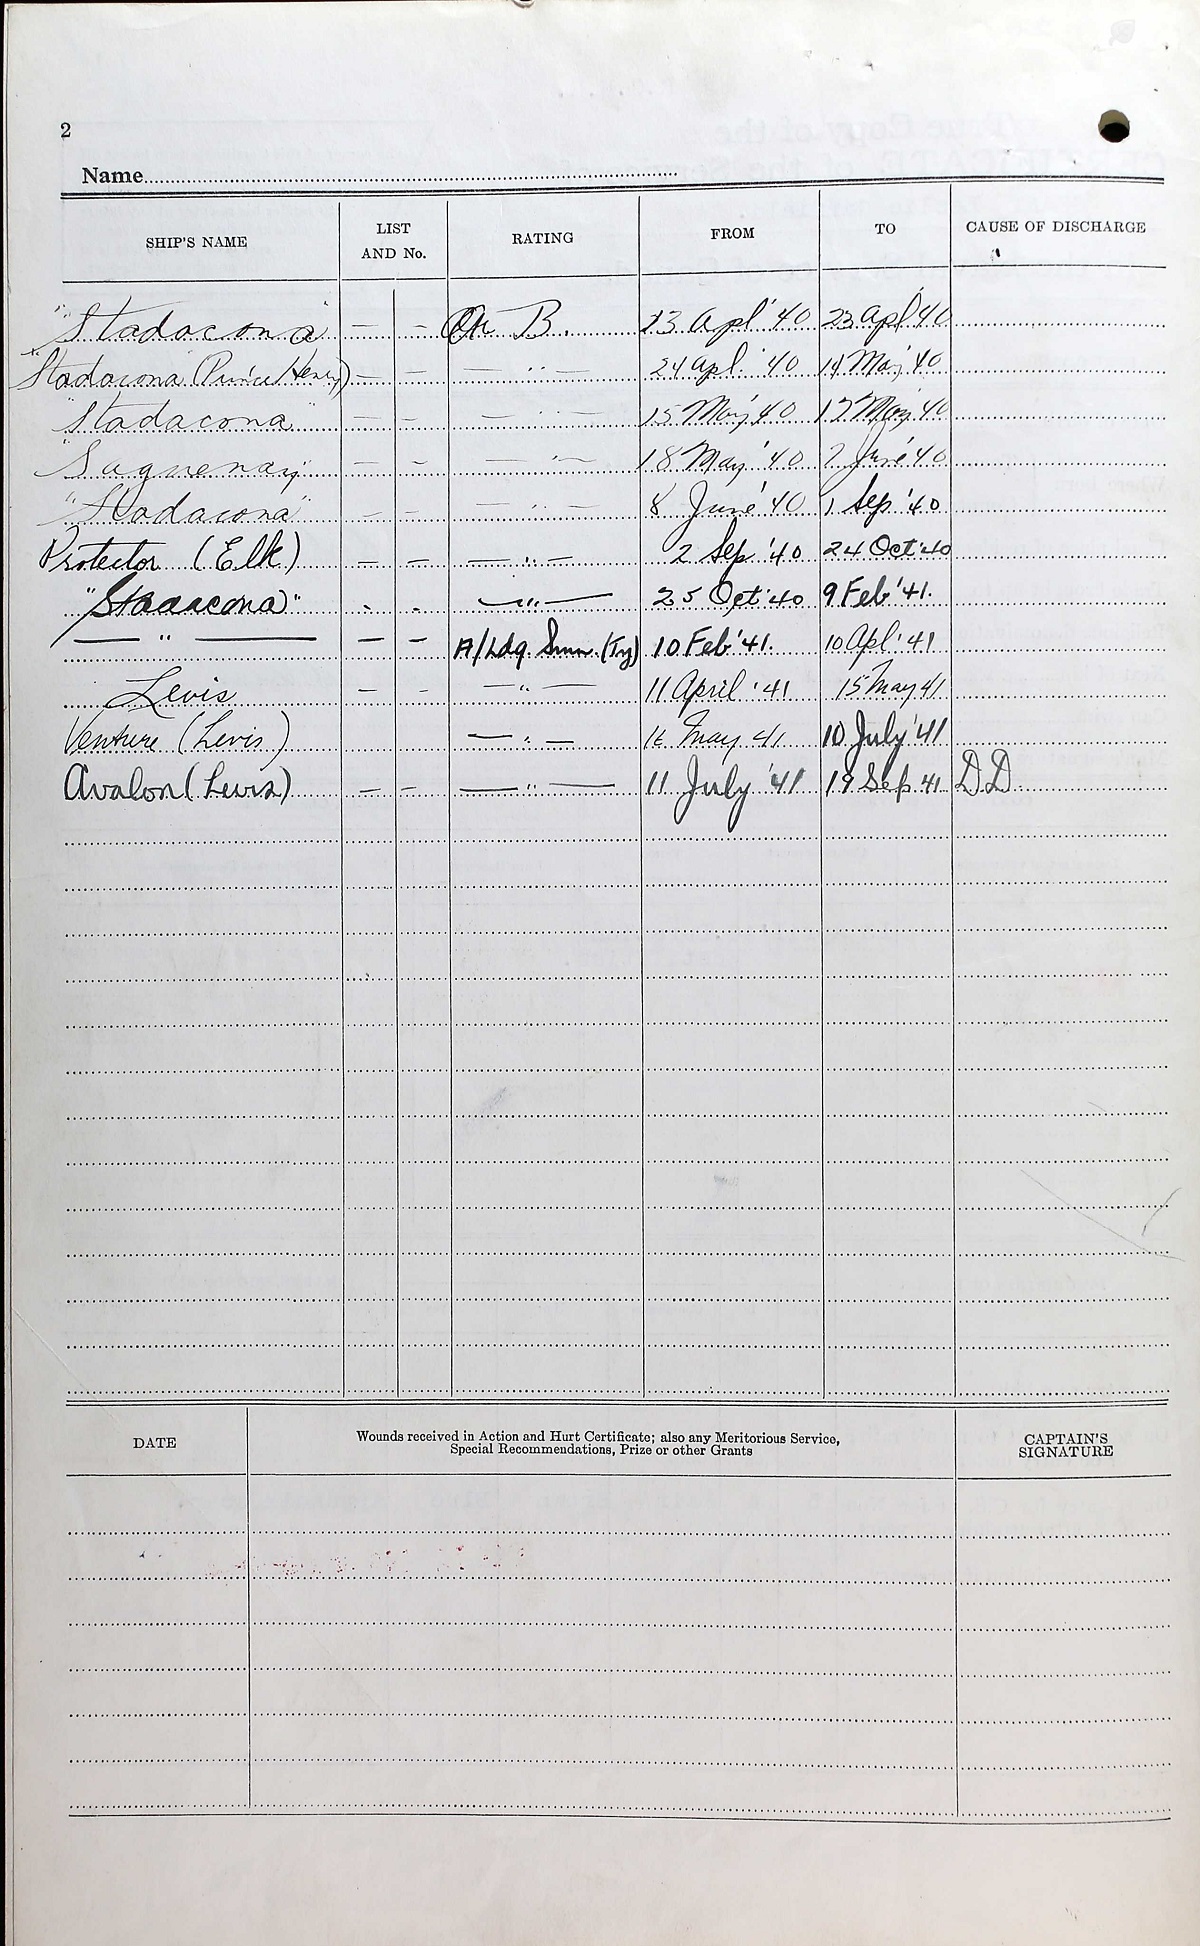 2
Name
SHIP'S NAME LIST AND No. RATING FROM TO CAUSE OF DISCHARGE
"Stadacona" — — B. 23 Apl '40 23 Apl '40
"Stadacona (Prince Henry) — — — " — 24 Apl. '40 14 May '40
"Stadacona" — — — " — 15 May '40 17 May '40
"Saguenay" — — — " — 18 May '40 7 June '40
"Stadacona" — — — " — 8 June '40 1 Sep '40
Protector (Elk) — — — " — 2 Sep '40 24 Oct '40
"Stadacona" . . — " — 25 Oct '40 9 Feb '41.
— " — — — A/Ldg Smn. (Ty) 10 Feb '41. 10 Apl '41
Levis — — — " — 11 April '41 15 May 41
Venture (Levis) — " — 16 May 41 10 July '41
Avalon (Levis) — — — " — 11 July '41 19 Sep 41 D.D.
DATE Wounds received in Action and Hurt Certificate; also any Meritorious Service, CAPTAIN'S
Special Recommendations, Prize or other Grants SIGNATURE